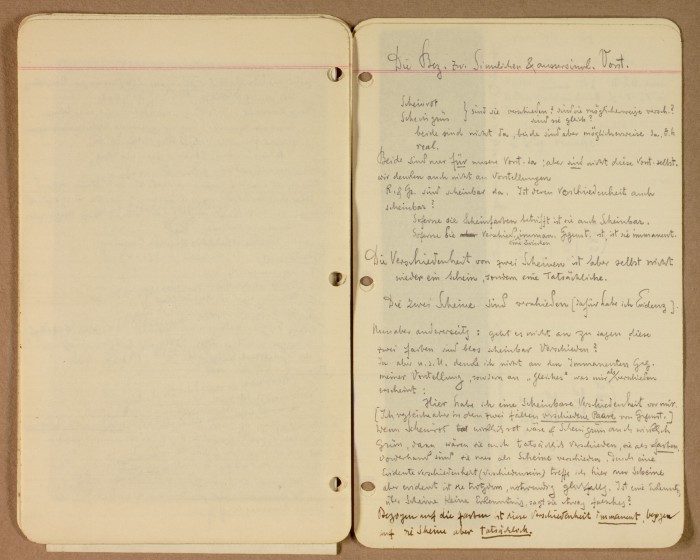 Die Bez. zw. Sinnlichen & aussersinnl. Vorst.
Scheinrot
Scheingrün } sind sie verschieden? sind sie möglicherweise versch.?
sind sie gleich?
beide sind nicht da, beide sind aber möglicherweise da, d.h
real.
Beide sind nur für unsere Vorst. da; aber sind nicht diese Vorst. selbst.
wir denken auch nicht an Vorstellungen
R. & Gr. sind scheinbar da. Ist deren Verschiedenheit auch
scheinbar?
Soferne sie Scheinfarben betrifft ist sie auch Scheinbar.
Soferne sie Verschied. immanen. Gegenst. ist, ist sie immanent.
Die Verschiedenheit von zwei Scheinen ist aber selbst nicht
wieder ein Schein, sondern eine Tatsächliche.
Die zwei Scheine sind verschieden [dafür habe ich Evidenz].
Nun aber anderseits: geht es nicht an zu sagen diese
zwei Farben sind blos scheinbar Verschieden?
Ja aber denke ich nicht an den Immanenten Geg.
meiner Vorstellung, sondern an „Gleiches" was mir als verschieden
erscheint;
Hier habe ich eine Scheinbare Verschiedenheit vor mir.
[Ich vergleiche aber in den zwei Fällen verschiedene Paare von Gegenst.]
Wenn Scheinrot wirklich rot wäre & Scheingrün auch wirklich
Grün, dann wären sie auch tatsächlich verschieden, sie als Farben,
sind sie nur als Scheine verschieden. Durch eine
Evidente Verschiedenheit (Verschiedensein) treffe ich hier nur Scheine
aber evident ist sie trotzdem, notwendig Ist eine Erkenntnis
über Scheine keine Erkenntnis, sagt sie etwas falsches?
Bezogen auf die Farben ist diese Verschiedenheit immanent, bezogen
auf die Scheine aber tatsächlich.